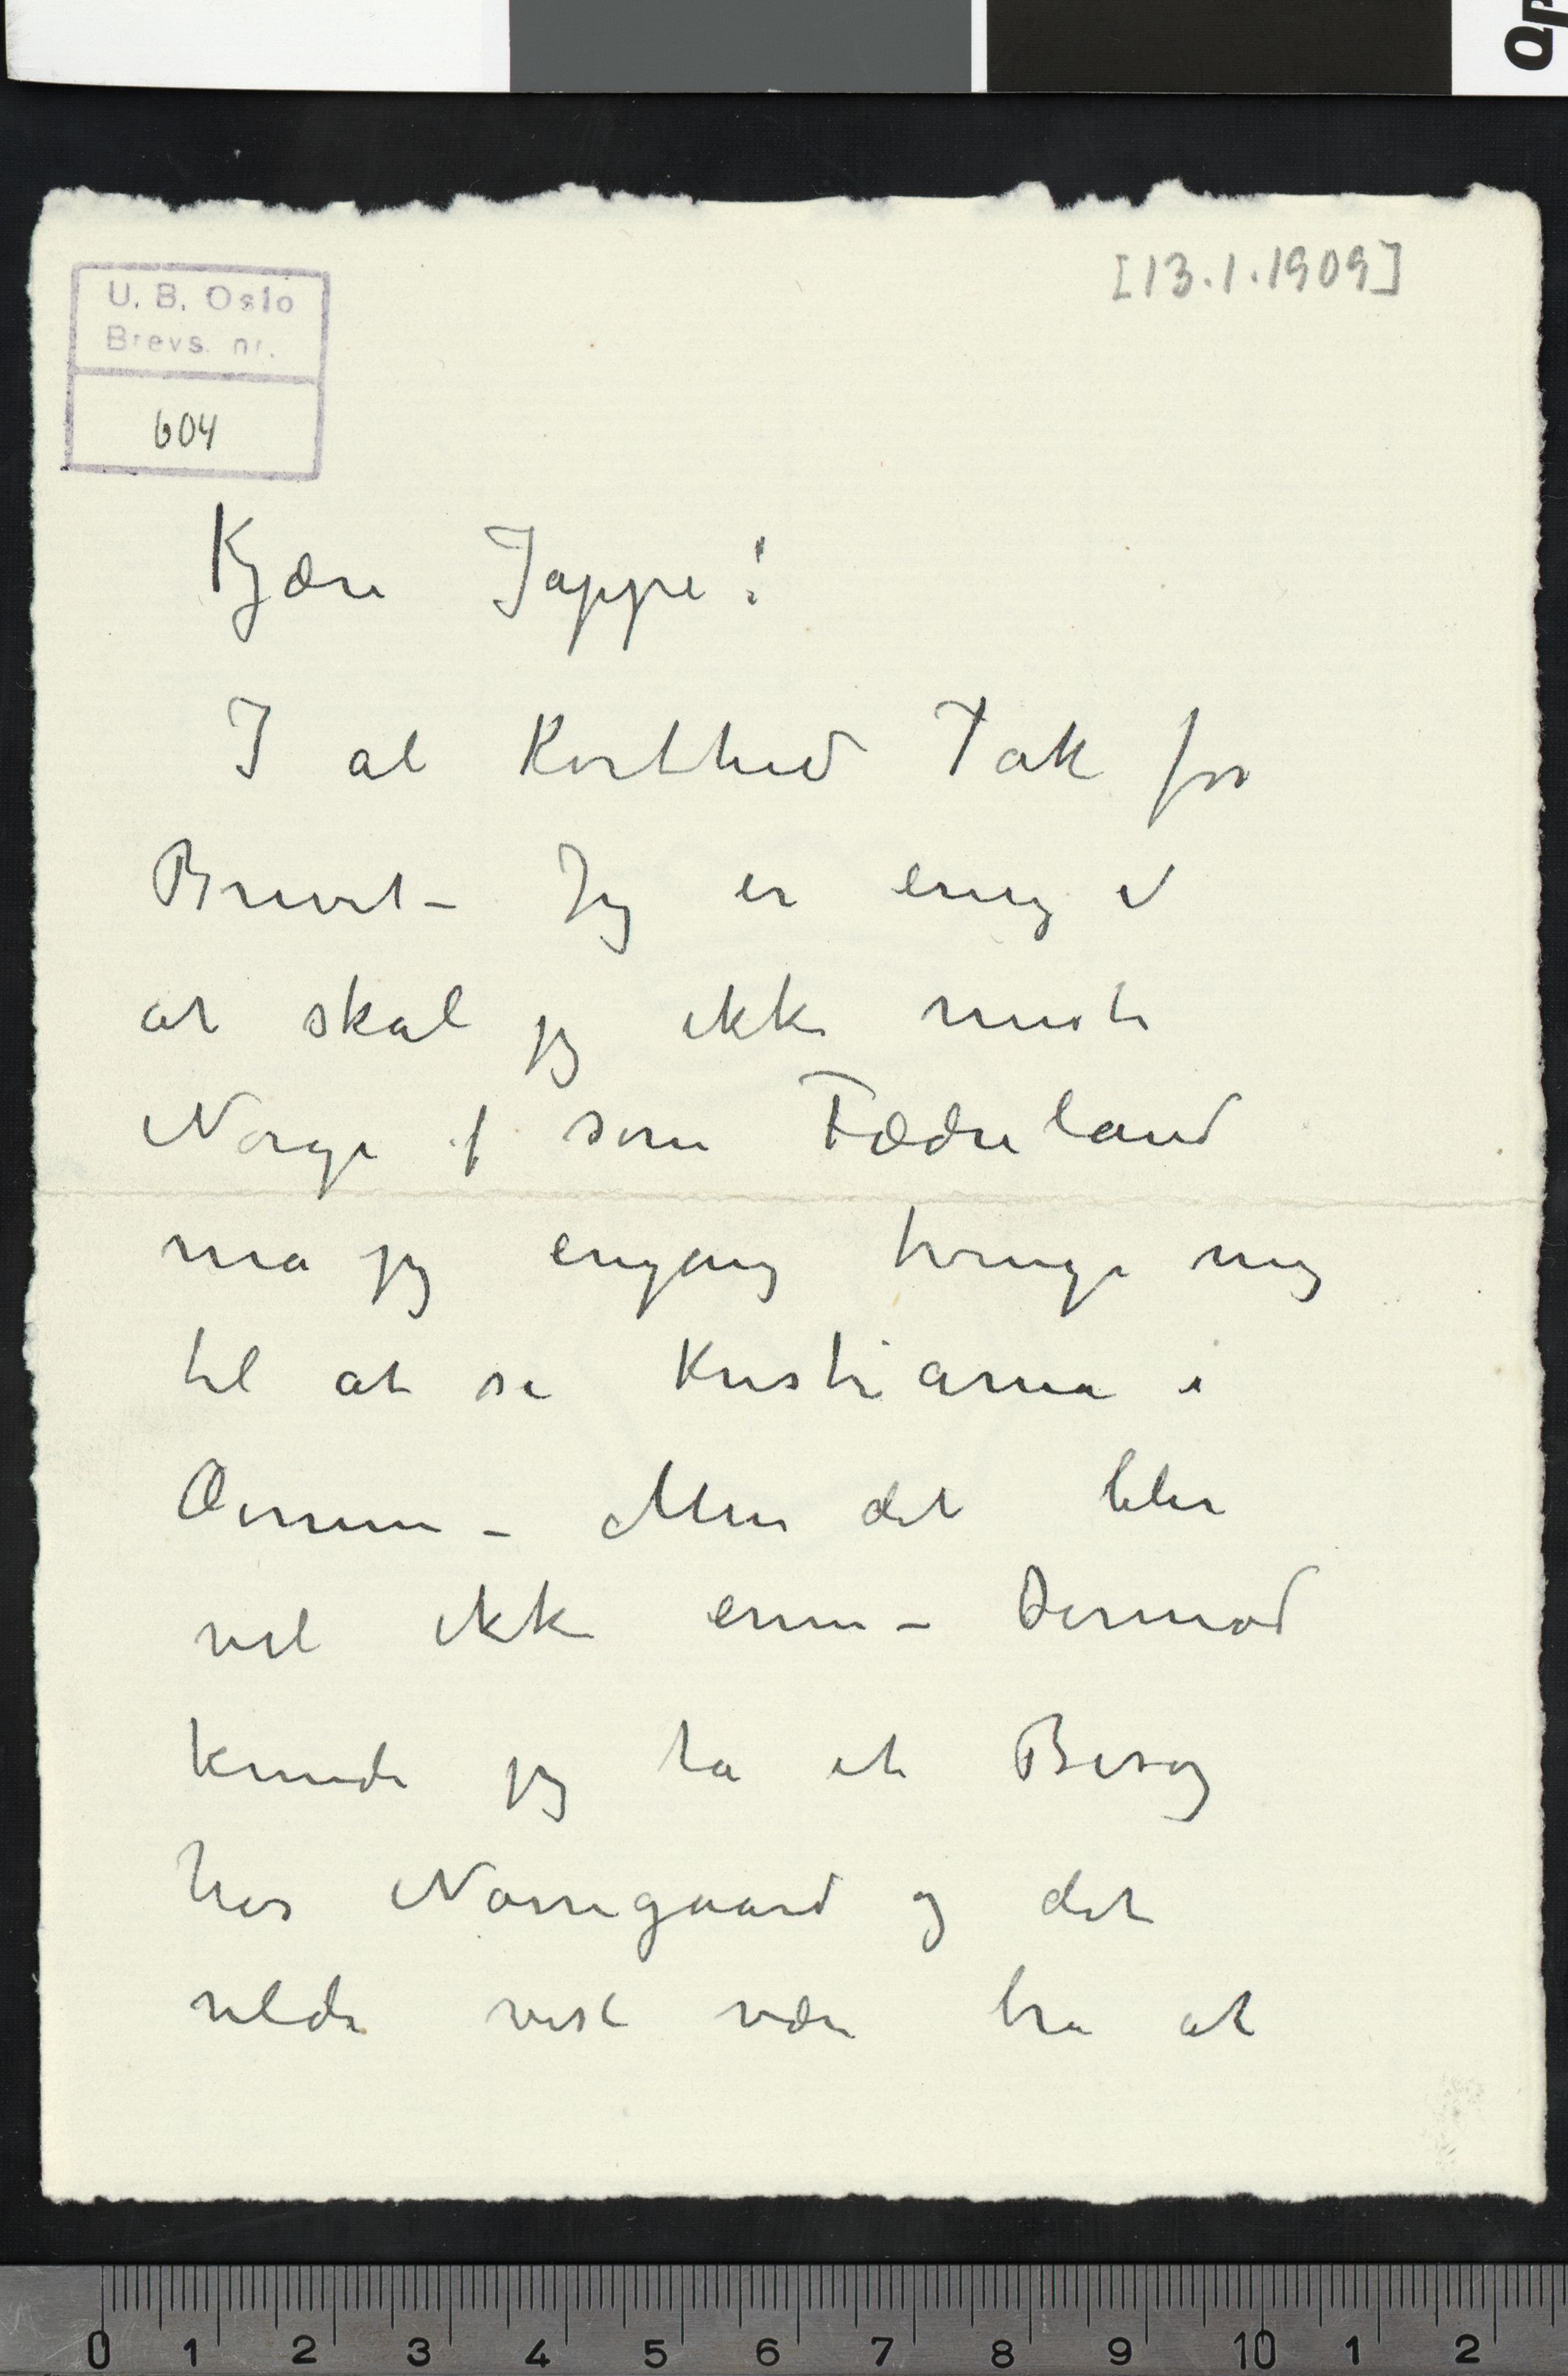 Op
[13.1.1909]
U. B. Oslo
Brevs. nr.
604
Kjære Jappe!
I al Korthed Tak for
Brevet – Jeg er enig i
at skal jeg ikke miste
Norge som Fædreland
må jeg engang tvinge mig
til at se Kristiania i
Øinene – Men det blir
vel ikke enu – Derimod
kunde jeg ta et Besøg
hos Nørregaard og det
vilde vist være bra at
0 1 2 3 4 5 6 7 8 9 10 1 2